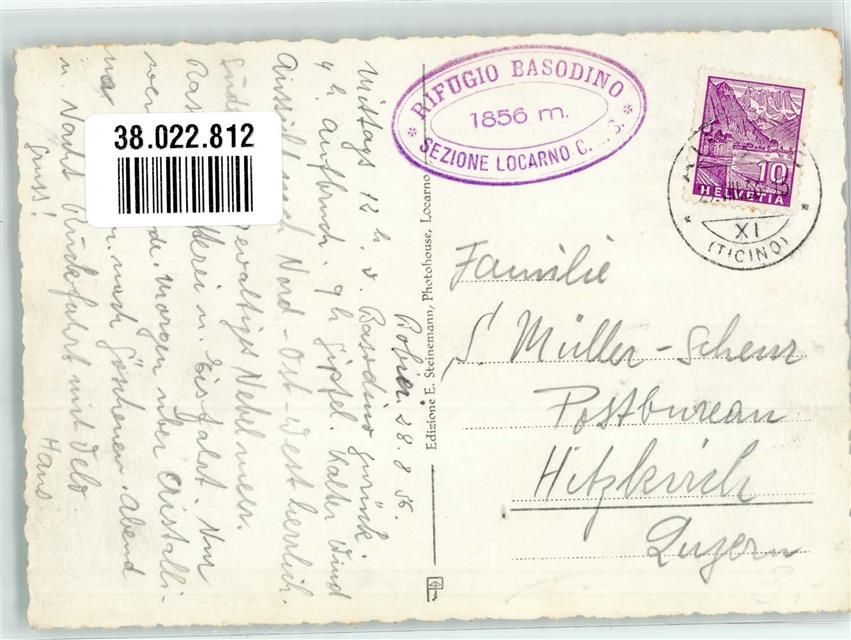 38.022.812
RIFUGIO BASODINO
1856 m.
SEZIONE LOCARNO C.
10
HELVETIA
XI
(TICINO)
Edizione E. Steinemann, Photohouse, Locarno
28.8.36.
Mittags 12 h v. Basodino zurück.
4 h. Aufbruch. 9 h Gipfel. Kalter Wind
Aussicht nach Nord-Ost-West herrlich.
gewaltiges Nebelmeer.
u. Eisfahrt.
Morgen über Cristalli-
na nach Göschenen. Abend
u. Nacht Rückfahrt mit Velo
Gruss! Hans
Familie
S. Müller-Scherer
Postbureau
Hitzkirch
Luzern